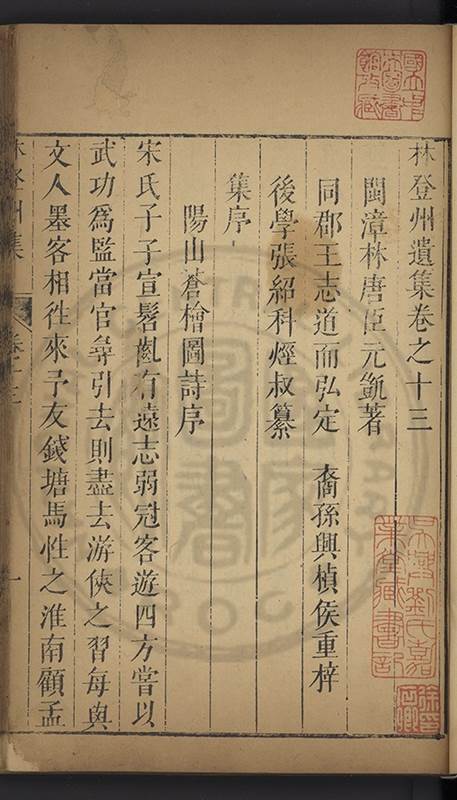 林登州遺集卷之十三
閩漳林唐臣元凱著
同郡王志道而弘定　裔孫興楨侯重梓
後學張紹科烴叔纂
集序
陽山蒼檜圖詩序
宋氏子子宣髫齓有遠志弱冠客遊四方嘗以
武功爲監當官尋引去則盡去游俠之習每與
文人墨客相徃來予友錢塘馬性之淮南顧孟
林登州集
卷十三
一
國立中
央圖書
館收藏
吳興劉氏嘉
業堂藏書記